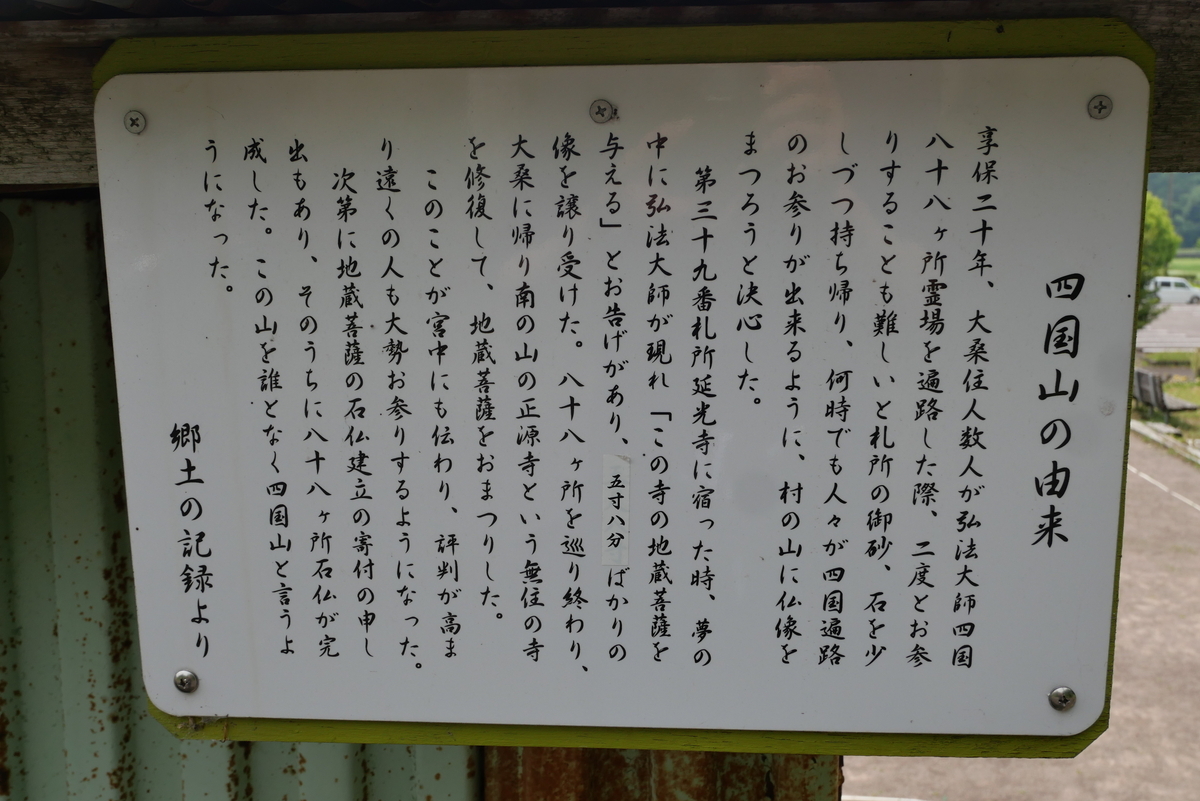 四国山の由来
享保二十年、大桑住人数人が弘法大師四国
八十八ヶ所霊場を遍路した際、二度とお参
りすることも難しいと札所の御砂、石を少
しづつ持ち帰り、何時でも人々が四国遍路
のお参りが出来るように、村の山に仏像を
まつろうと決心した。
第三十九番札所延光寺に宿った時、夢の
中に弘法大師が現れ「この寺の地蔵菩薩を
与える」とお告げがあり、五寸八分ばかりの
像を譲り受けた。八十八ヶ所を巡り終わり、
大桑に帰り南の山の正源寺という無住の寺
を修復して、地蔵菩薩をおまつりした。
このことが宮中にも伝わり、評判が高ま
り遠くの人も大勢お参りするようになった。
次第に地蔵菩薩の石仏建立の寄付の申し
出もあり、そのうちに八十八ヶ所石仏が完
成した。この山を誰となく四国山と言うよ
うになった。
郷土の記録より